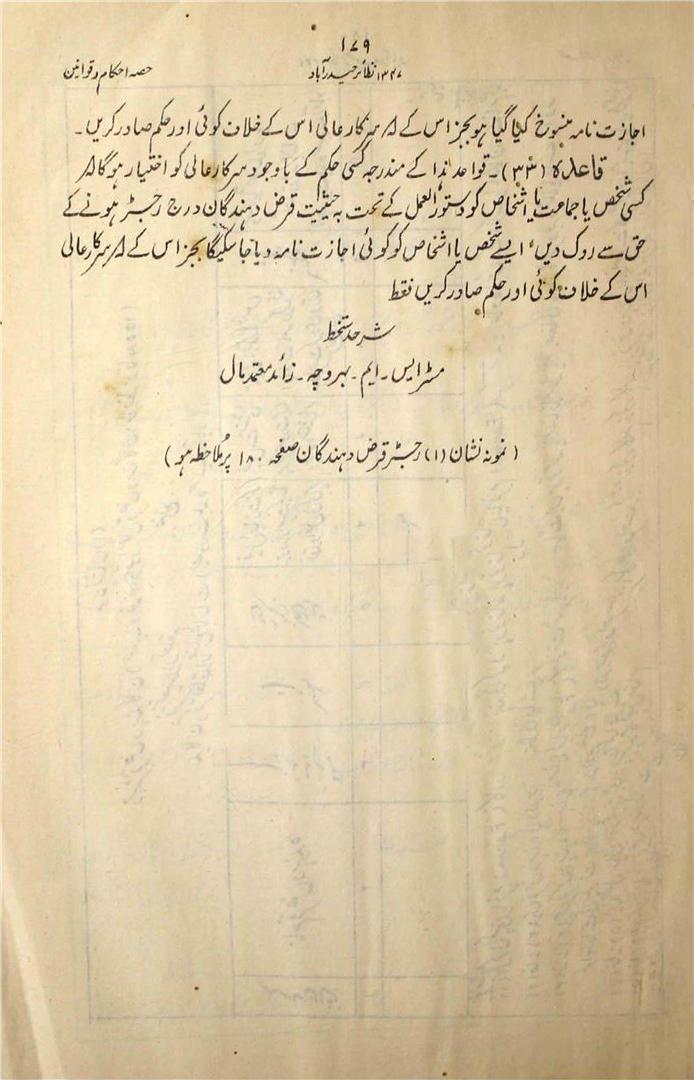 ۱۷۹
حصہ احکام و قوانین
۱۳۴۷ نظائر حیدرآباد
اجازت نامہ منسوخ کیا گیا ہو بجز اس کے کہ سرکار عالی اس کے خلاف کوئی اور حکم صادر کریں۔
قاعدہ (۳۳)۔ قواعد ہذا کے مندرجہ کسی حکم کے باوجود سرکار عالی کو اختیار ہوگا کہ
کسی شخص یا جماعت یا اشخاص کو دستور العمل کے تحت بہ حیثیت قرض دہندگان درج رجسٹر ہونے کے
حق سے روک دیں، ایسے شخص یا اشخاص کو کوئی اجازت نامہ نہ دیا جا سکیگا بجز اس کے کہ سرکار عالی
اس کے خلاف کوئی اور حکم صادر کریں فقط
شرحدستخط
مسٹر ایس۔ ایم۔ بھروچہ۔ زائد معتمد مال
(نمونہ نشان (۱) رجسٹر قرض دہندگان صفحہ ۱۸۰ پر ملاحظہ ہو)